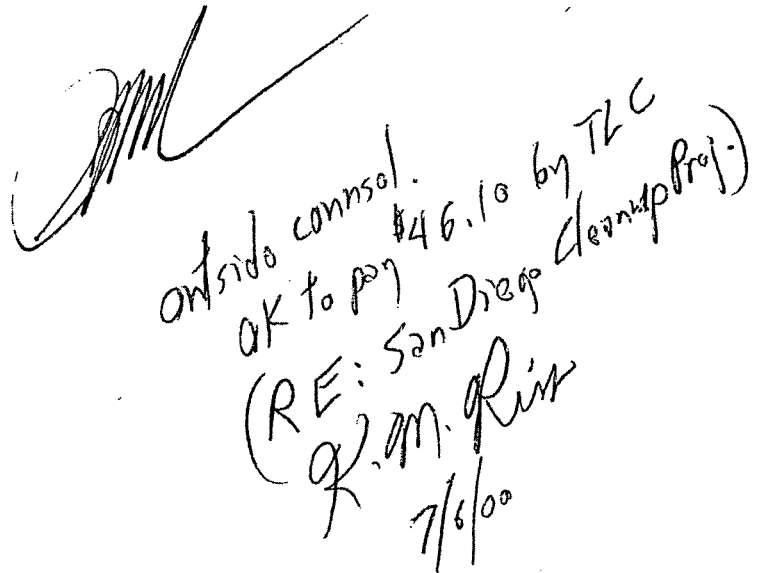 outside counsel.
ok to pay $46.10 by TLC
(RE: San Diego Cleanup Proj.)
K. M.
7/6/00